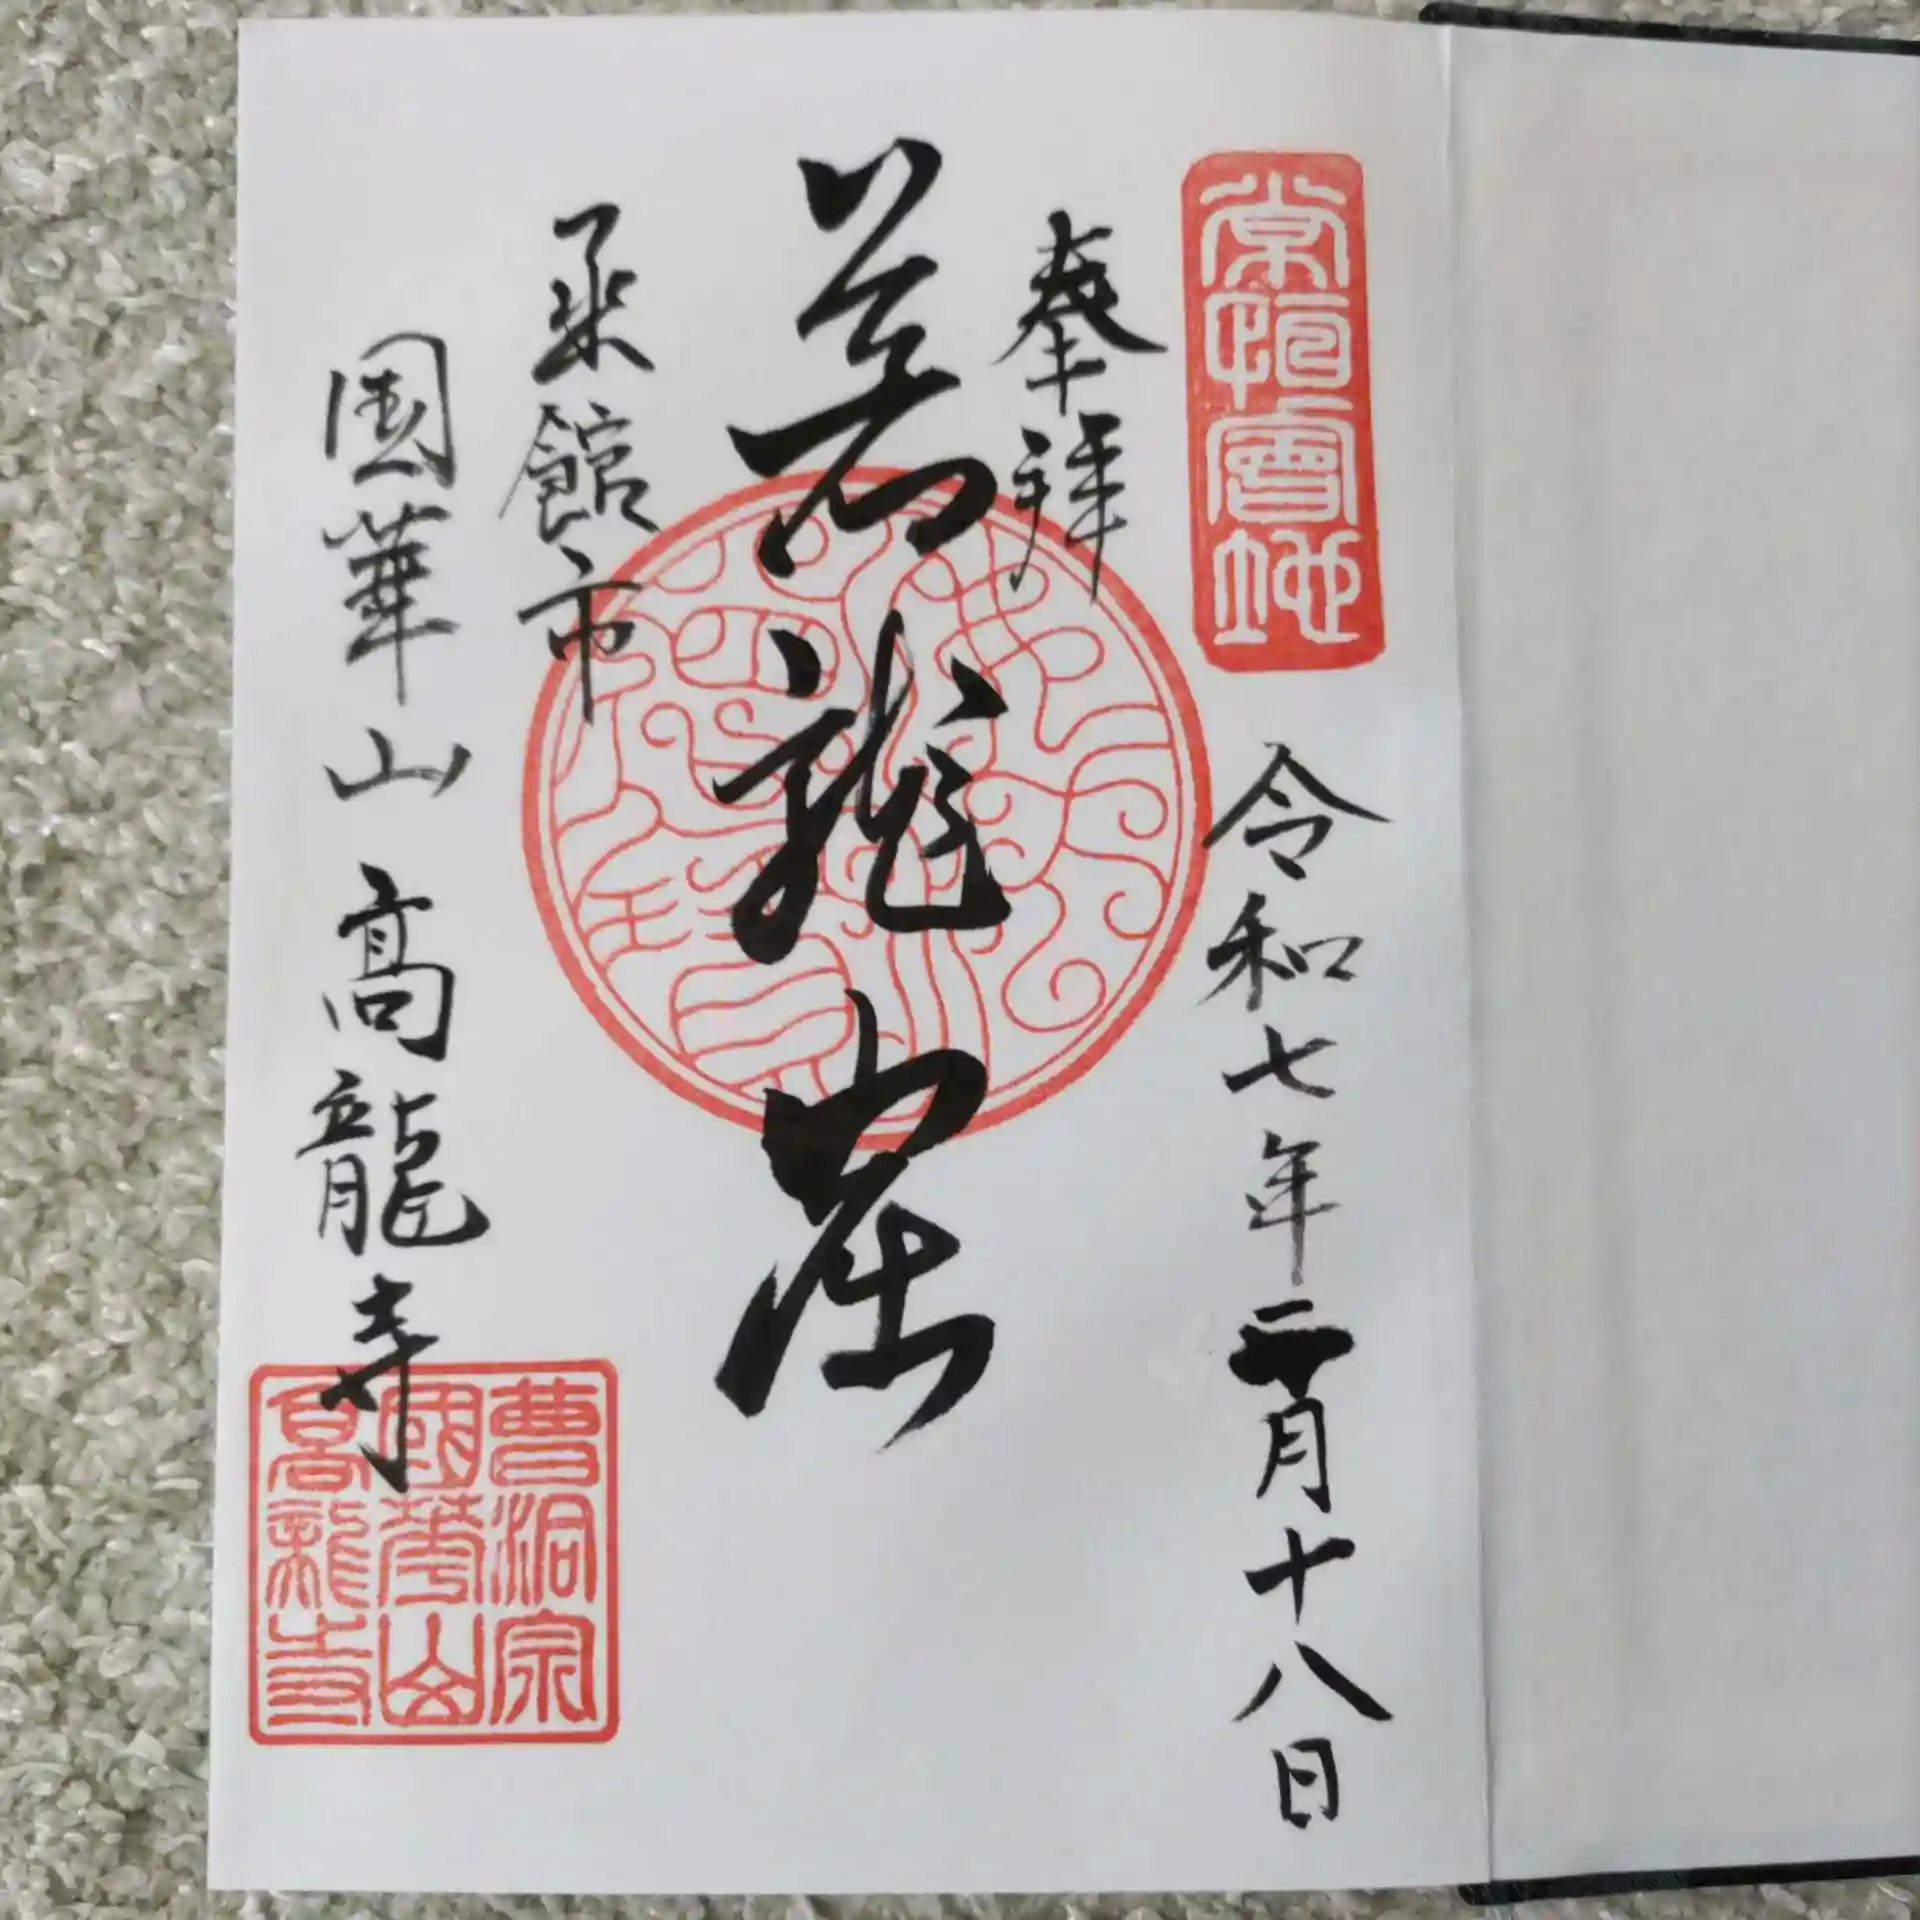 常恒會地
令和七年二月十八日
奉拝
龍
函館市
國華山 高龍寺
曹洞宗
國華山
高龍寺